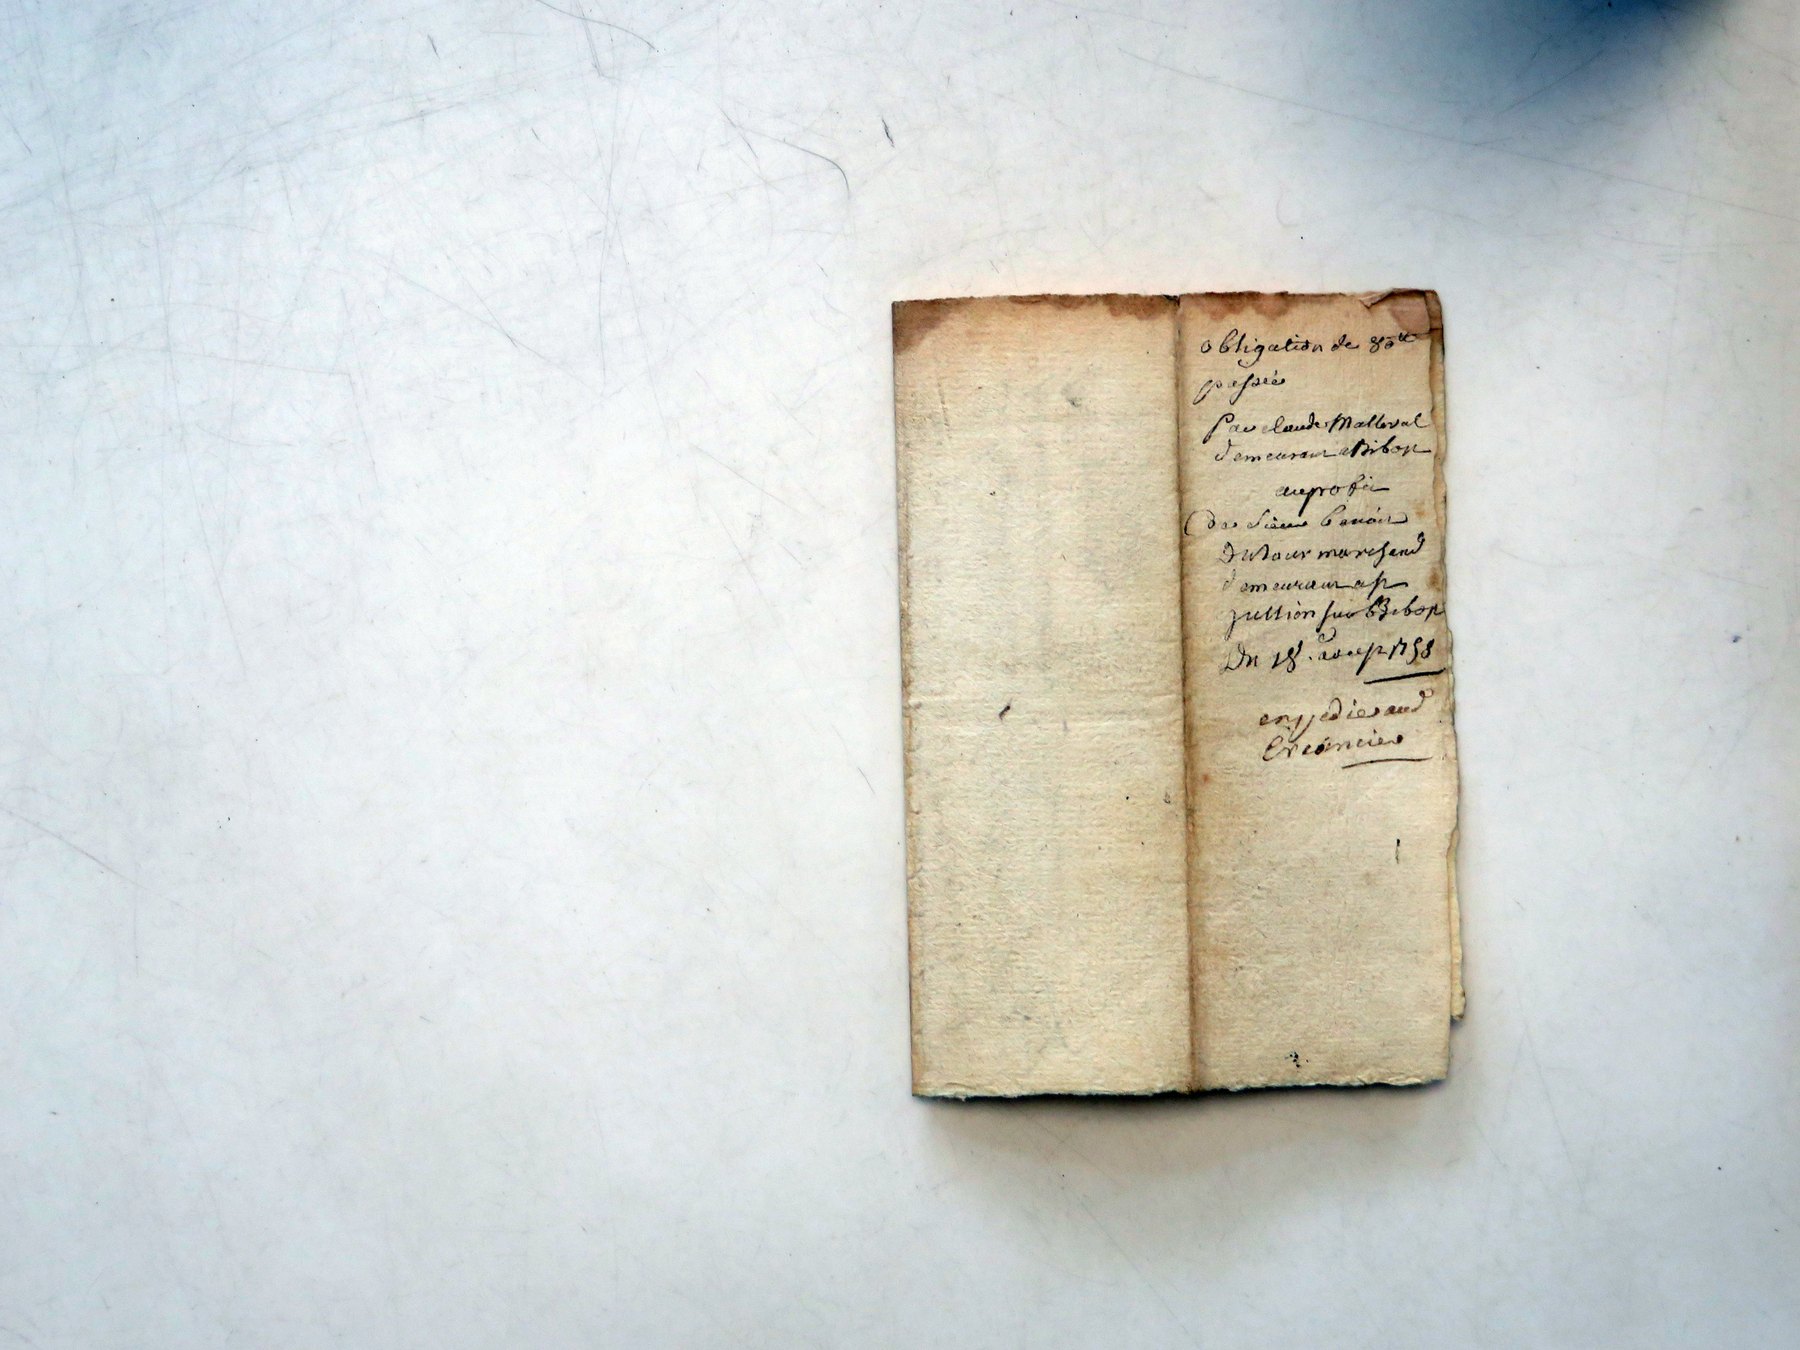 obligation de 80ᵗᵗ
passée
par claude Malleval
demeurant a Bibost
au profit
de sieur benoist
Dutour marchand
demeurant a st
jullien sur Bibost
Du 18e. aoust 1758
expedié aud
Creancier